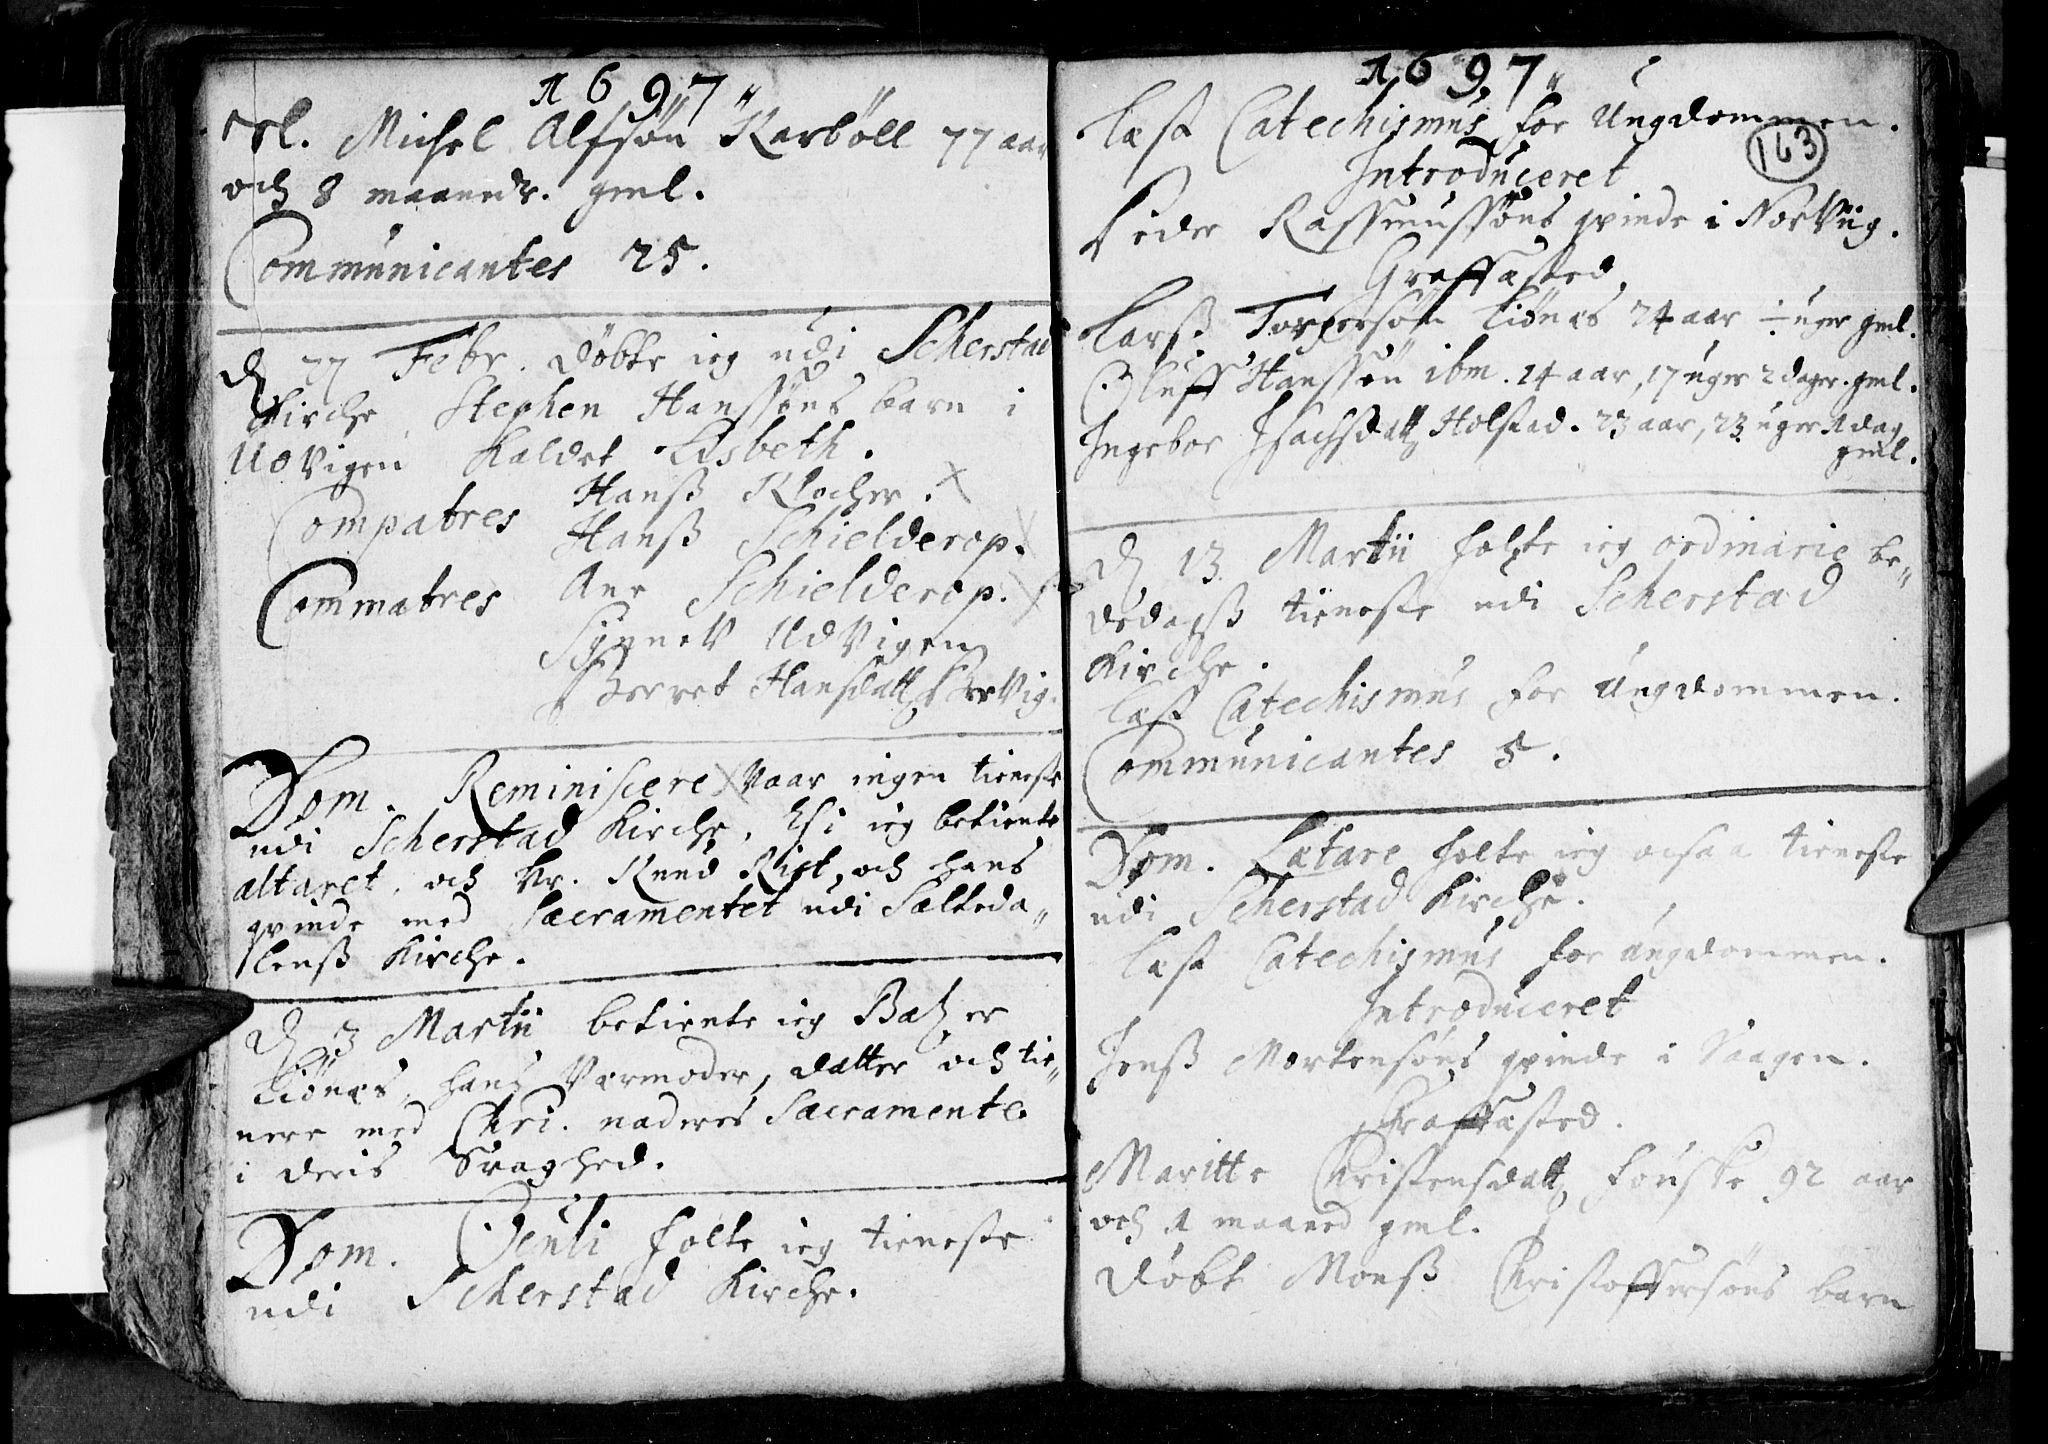 1697
sl. Michel Alfsøn Karbøll 77 aar
och 8 maaneder. gml.
Communicantes 25.
D 27 Febr. døbte ieg udi Scherstad
Kirche Stephen Hanssøns barn i
UdVigen Kaldet Lisbeth.
Compatres Hanß Klocher.
Hanß Schielderop.
Commatres Ane Schielderop.
Synnev UdVigen
Berret Hansdatt
Dom. Reminiscere Vaar ingen tieneste
udi Scherstad Kirche. thi ieg betiente
altaret, och Hr. Knud Rist, och hans
qvinde med Sacramentet udi Salteda„
lenß Kirche.
D 3 Martii betiente ieg
Kiønæs, hans Værmoder, datter och tie„
nere med Chri. naderes Sacramente
i deris Svaghed.
Dom. Oculi holte ieg tieneste
udi Scherstad Kirche.
1697
163
læst Catechismus for Ungdommen.
Introduceret
Peder Rassmussøns qvinde i NorViig.
Graffæsted.
Larß Torgersøn Kiønæs 24 aar ÷ uger gml.
Oluff Hanssøn ibm. 14 aar, 17 uger 2 dager. gml.
Ingebor Isachsdatt Holstad. 23 aar, 23 uger 1 dag
gml.
D 13 Martii holte ieg ordinarie be„
dedagß tieneste udi Scherstad
Kirche.
læst Catechismus for Ungdommen.
Communicantes 5.
Dom. Lætare holte ieg ocsaa tieneste
udi Scherstad Kirche.
læst Catechismus for ungdommen.
Introduceret
Jenß Mortensøns qvinde i Vaagen.
Graffæsted.
Maritte Christensdatt Fouske 92 aar
och 1 maaned gml.
døbt Monß Christoffersøns barn